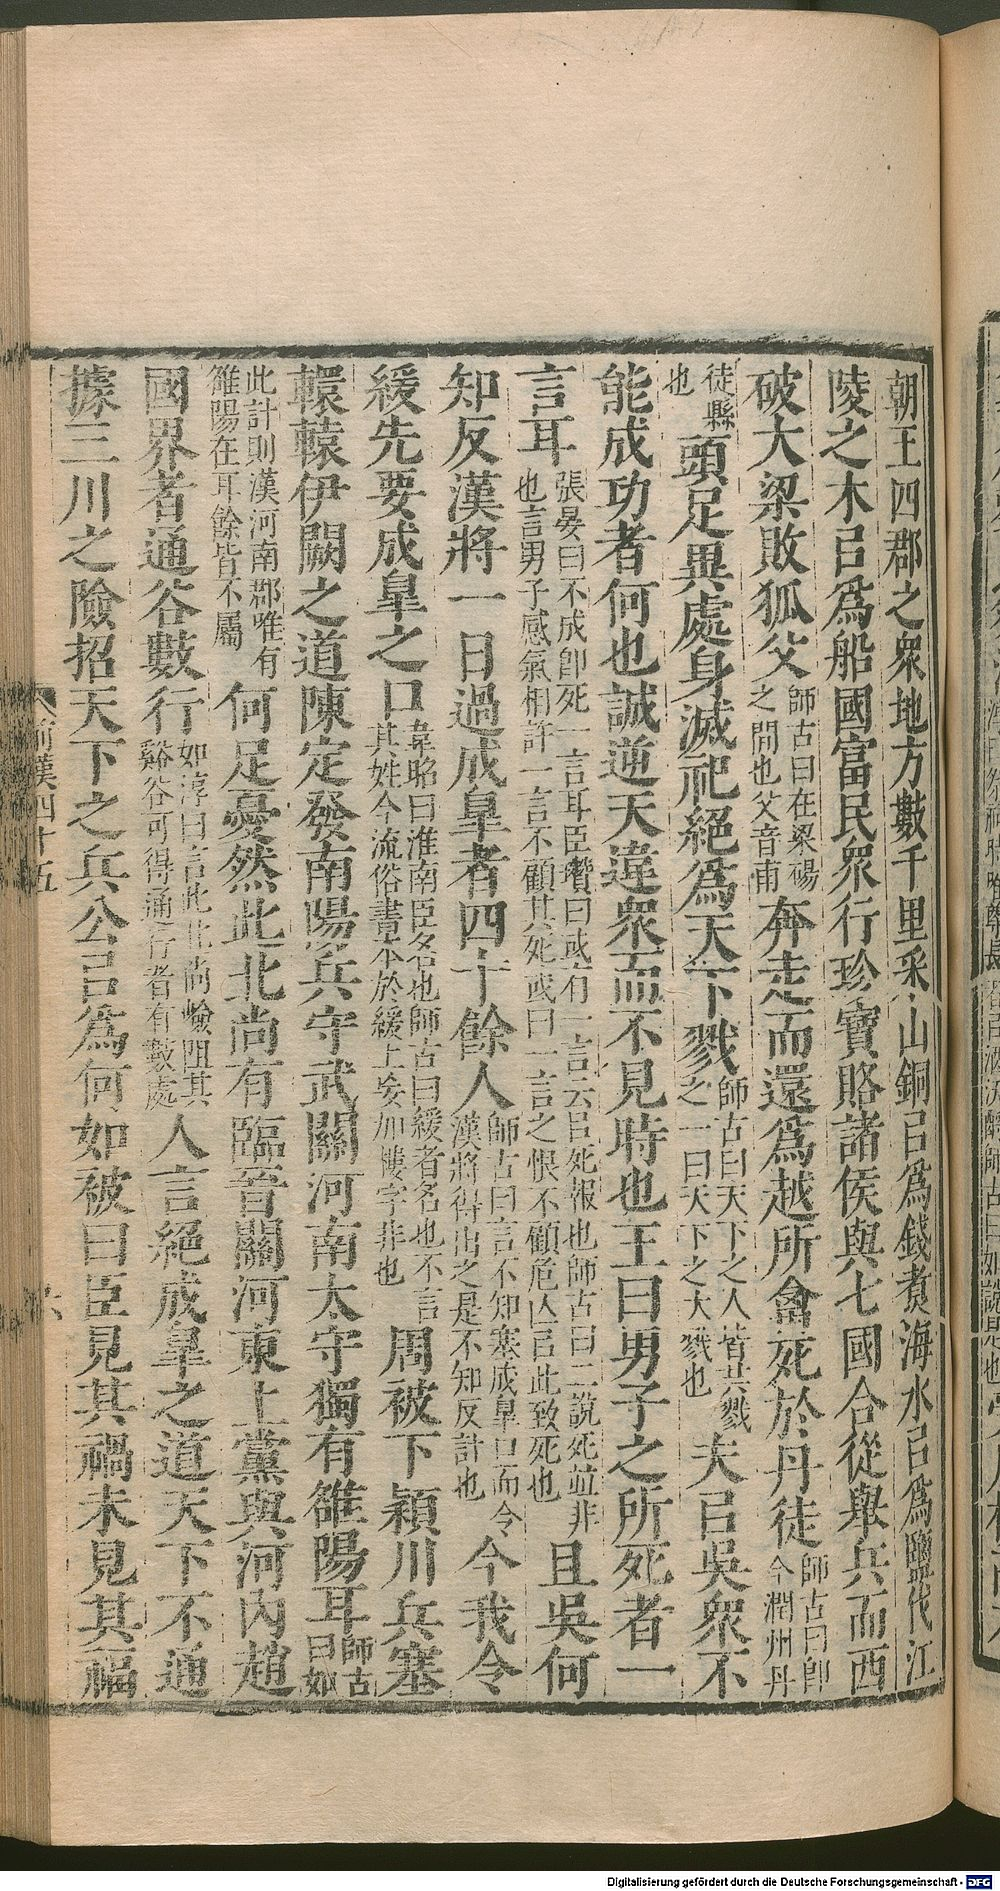 朝王四郡之衆地方數千里采山銅㠯爲錢煑海水㠯爲鹽伐江
陵之木㠯爲船國富民衆行珍寶賂諸侯與七國合從舉兵而西
破大梁敗狐父師古曰在梁碭之間也父音甫奔走而還爲越所禽死於丹徒師古曰卽今潤州丹
徒縣也頭足異處身滅祀絕爲天下戮師古曰天下之人皆共戮之一曰天下之大戮也夫㠯吳衆不
能成功者何也誠逆天違衆而不見時也王曰男子之所死者一
言耳張晏曰不成卽死一言耳臣瓚曰或有一言云㠯死報也師古曰二說死並非也言男子感氣相許一言不顧其死或曰一言之恨不顧危亡㠯此致死也且吳何
知反漢將一日過成皐者四十餘人師古曰言不知塞成皐口而令漢將得出之是不知反計也今我令
緩先要成皐之口韋昭曰淮南臣名也師古曰緩者名也不言其姓今流俗書本於緩上妄加樓字非也周被下潁川兵塞
轘轅伊闕之道陳定發南陽兵守武關河南太守獨有雒陽耳師古曰如
此計則漢河南郡唯有雒陽在耳餘皆不屬何足憂然此北尚有臨晉關河東上黨與河內趙
國界者通谷數行如淳曰言此北尚嶮阻其谿谷可得通行者有數處人言絕成皐之道天下不通
據三川之險招天下之兵公㠯爲何如被曰臣見其禍未見其福
前漢四十五
六
Digitalisierung gefördert durch die Deutsche Forschungsgemeinschaft - DFG